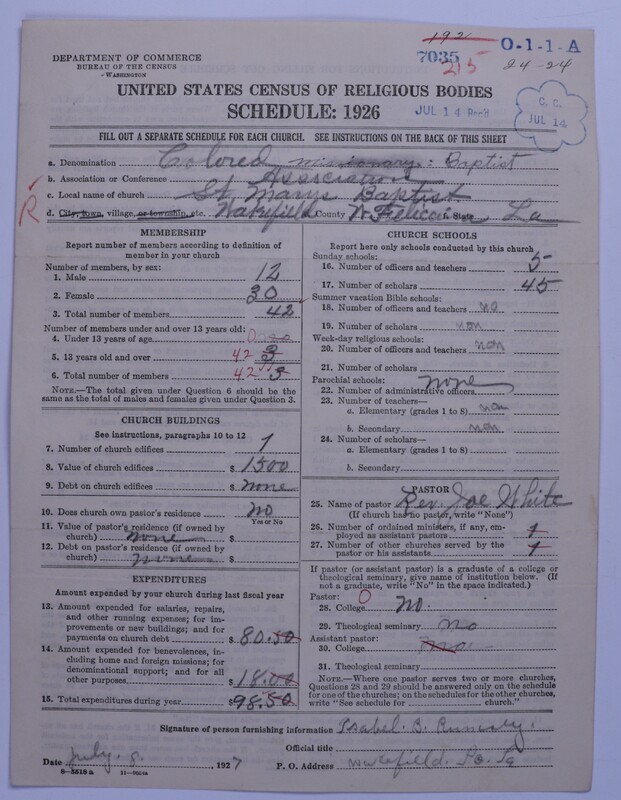 192 O-1-1-A
7035 215 24-24
DEPARTMENT OF COMMERCE
BUREAU OF THE CENSUS
WASHINGTON
UNITED STATES CENSUS OF RELIGIOUS BODIES
SCHEDULE: 1926
JUL 14 Recd
C. C.
JUL 14
FILL OUT A SEPARATE SCHEDULE FOR EACH CHURCH. SEE INSTRUCTIONS ON THE BACK OF THIS SHEET
a. Denomination Colored missionary: Baptist
b. Association or Conference Association
c. Local name of church St. Marys Baptist
R
d. City, town, village, or township, etc. Wakefield County W. Felician State La
MEMBERSHIP
Report number of members according to definition of member in your church
Number of members, by sex:
1. Male 12
2. Female 30
3. Total number of members 42
Number of members under and over 13 years old:
4. Under 13 years of age 0
5. 13 years old and over 42 3
6. Total number of members 42 3
NOTE.—The total given under Question 6 should be
same as the total of males and females given under Question 3.
CHURCH BUILDINGS
See instructions, paragraphs 10 to 12
7. Number of church edifices 1
8. Value of church edifices $ 1500
9. Debt on church edifices $ None
10. Does church own pastor's residence No
Yes or No
11. Value of pastor's residence (if owned by
church) None $
12. Debt on pastor's residence (if owned by
church) None $
EXPENDITURES
Amount expended by your church during last fiscal year
13. Amount expended for salaries, repairs,
and other running expenses; for im-
provements or new buildings; and for
payments on church debt $ 80.50
14. Amount expended for benevolences, in-
cluding home and foreign missions; for
denominational support; and for all
other purposes $ 18.00
15. Total expenditures during year $ 98.50
CHURCH SCHOOLS
Report here only schools conducted by this church
Sunday schools:
16. Number of officers and teachers 5
17. Number of scholars 45
Summer vacation Bible schools:
18. Number of officers and teachers no
19. Number of scholars non
Week-day religious schools:
20. Number of officers and teachers non
21. Number of scholars
Parochial schools: none
22. Number of administrative officers
23. Number of teachers—
a. Elementary (grades 1 to 8) non
b. Secondary non
24. Number of scholars—
a. Elementary (grades 1 to 8)
b. Secondary
PASTOR
25. Name of pastor Rev. Joe White
(If church has no pastor, write "None")
26. Number of ordained ministers, if any, em-
ployed as assistant pastors 1
27. Number of other churches served by the
pastor or his assistants 1
If pastor (or assistant pastor) is a graduate of a college or
theological seminary, give name of institution below. (If
not a graduate, write "No" in the space indicated.)
Pastor: 0
28. College No.
29. Theological seminary No
Assistant pastor:
30. College no
31. Theological seminary
NOTE.—Where one pastor serves two or more churches,
Questions 28 and 29 should be answered only on the schedule
for one of the churches; on the schedules for the other churches,
write "See schedule for church."
Signature of person furnishing information Isabel. B.
Official title
Date July. 8. , 1927 P. O. Address Wakefield.
8-5518a